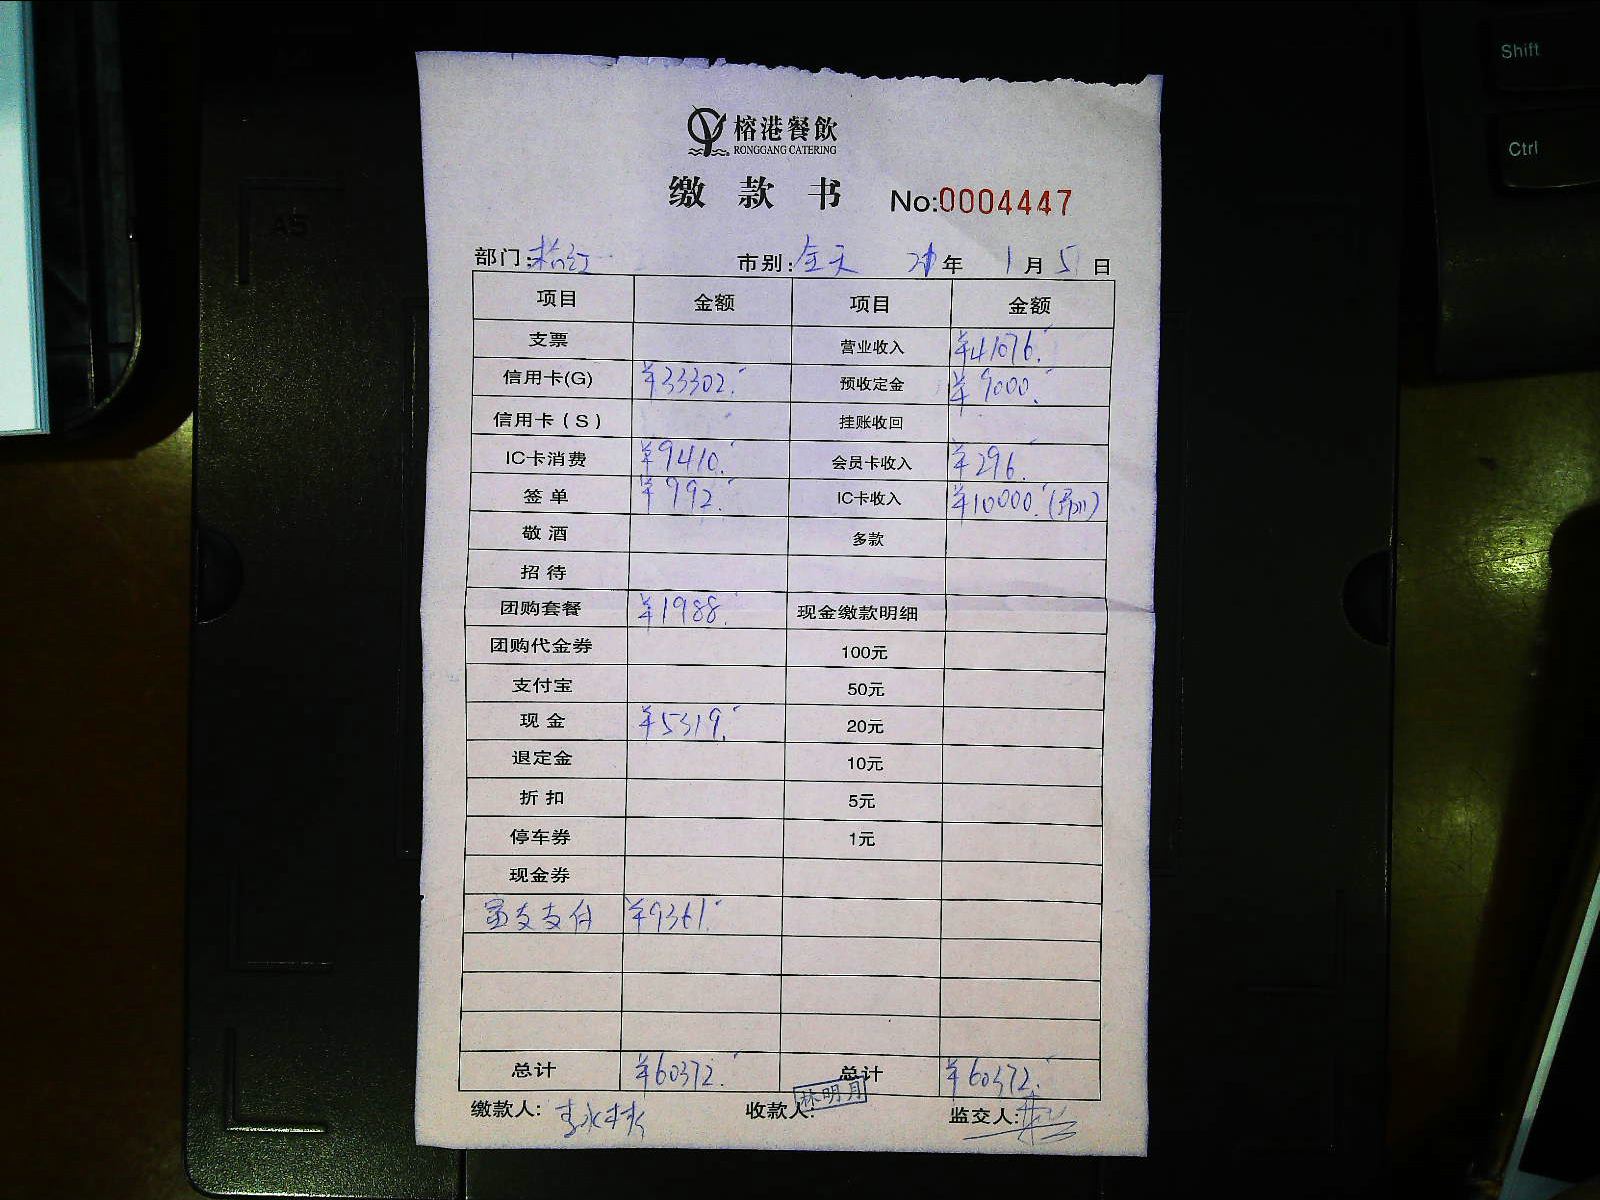 Shift
Ctrl
A5
榕港餐飲
RONGGANG CATERING
缴款书 No:0004447
部门: 市别:全天 年 1月5日
项目 金额 项目 金额
支票 营业收入 ¥41076.-
信用卡(G) ¥33302.- 预收定金 ¥9000.-
信用卡(S) 挂账收回
IC卡消费 ¥9410.- 会员卡收入 ¥296.-
签单 ¥992.- IC卡收入 ¥10000.-
敬酒 多款
招待
团购套餐 ¥1988.- 现金缴款明细
团购代金券 100元
支付宝 50元
现金 ¥5319.- 20元
退定金 10元
折扣 5元
停车券 1元
现金券
支付 ¥9361.-
总计 ¥60372.- 总计 ¥60372.-
缴款人: 收款人: 林明月 监交人: